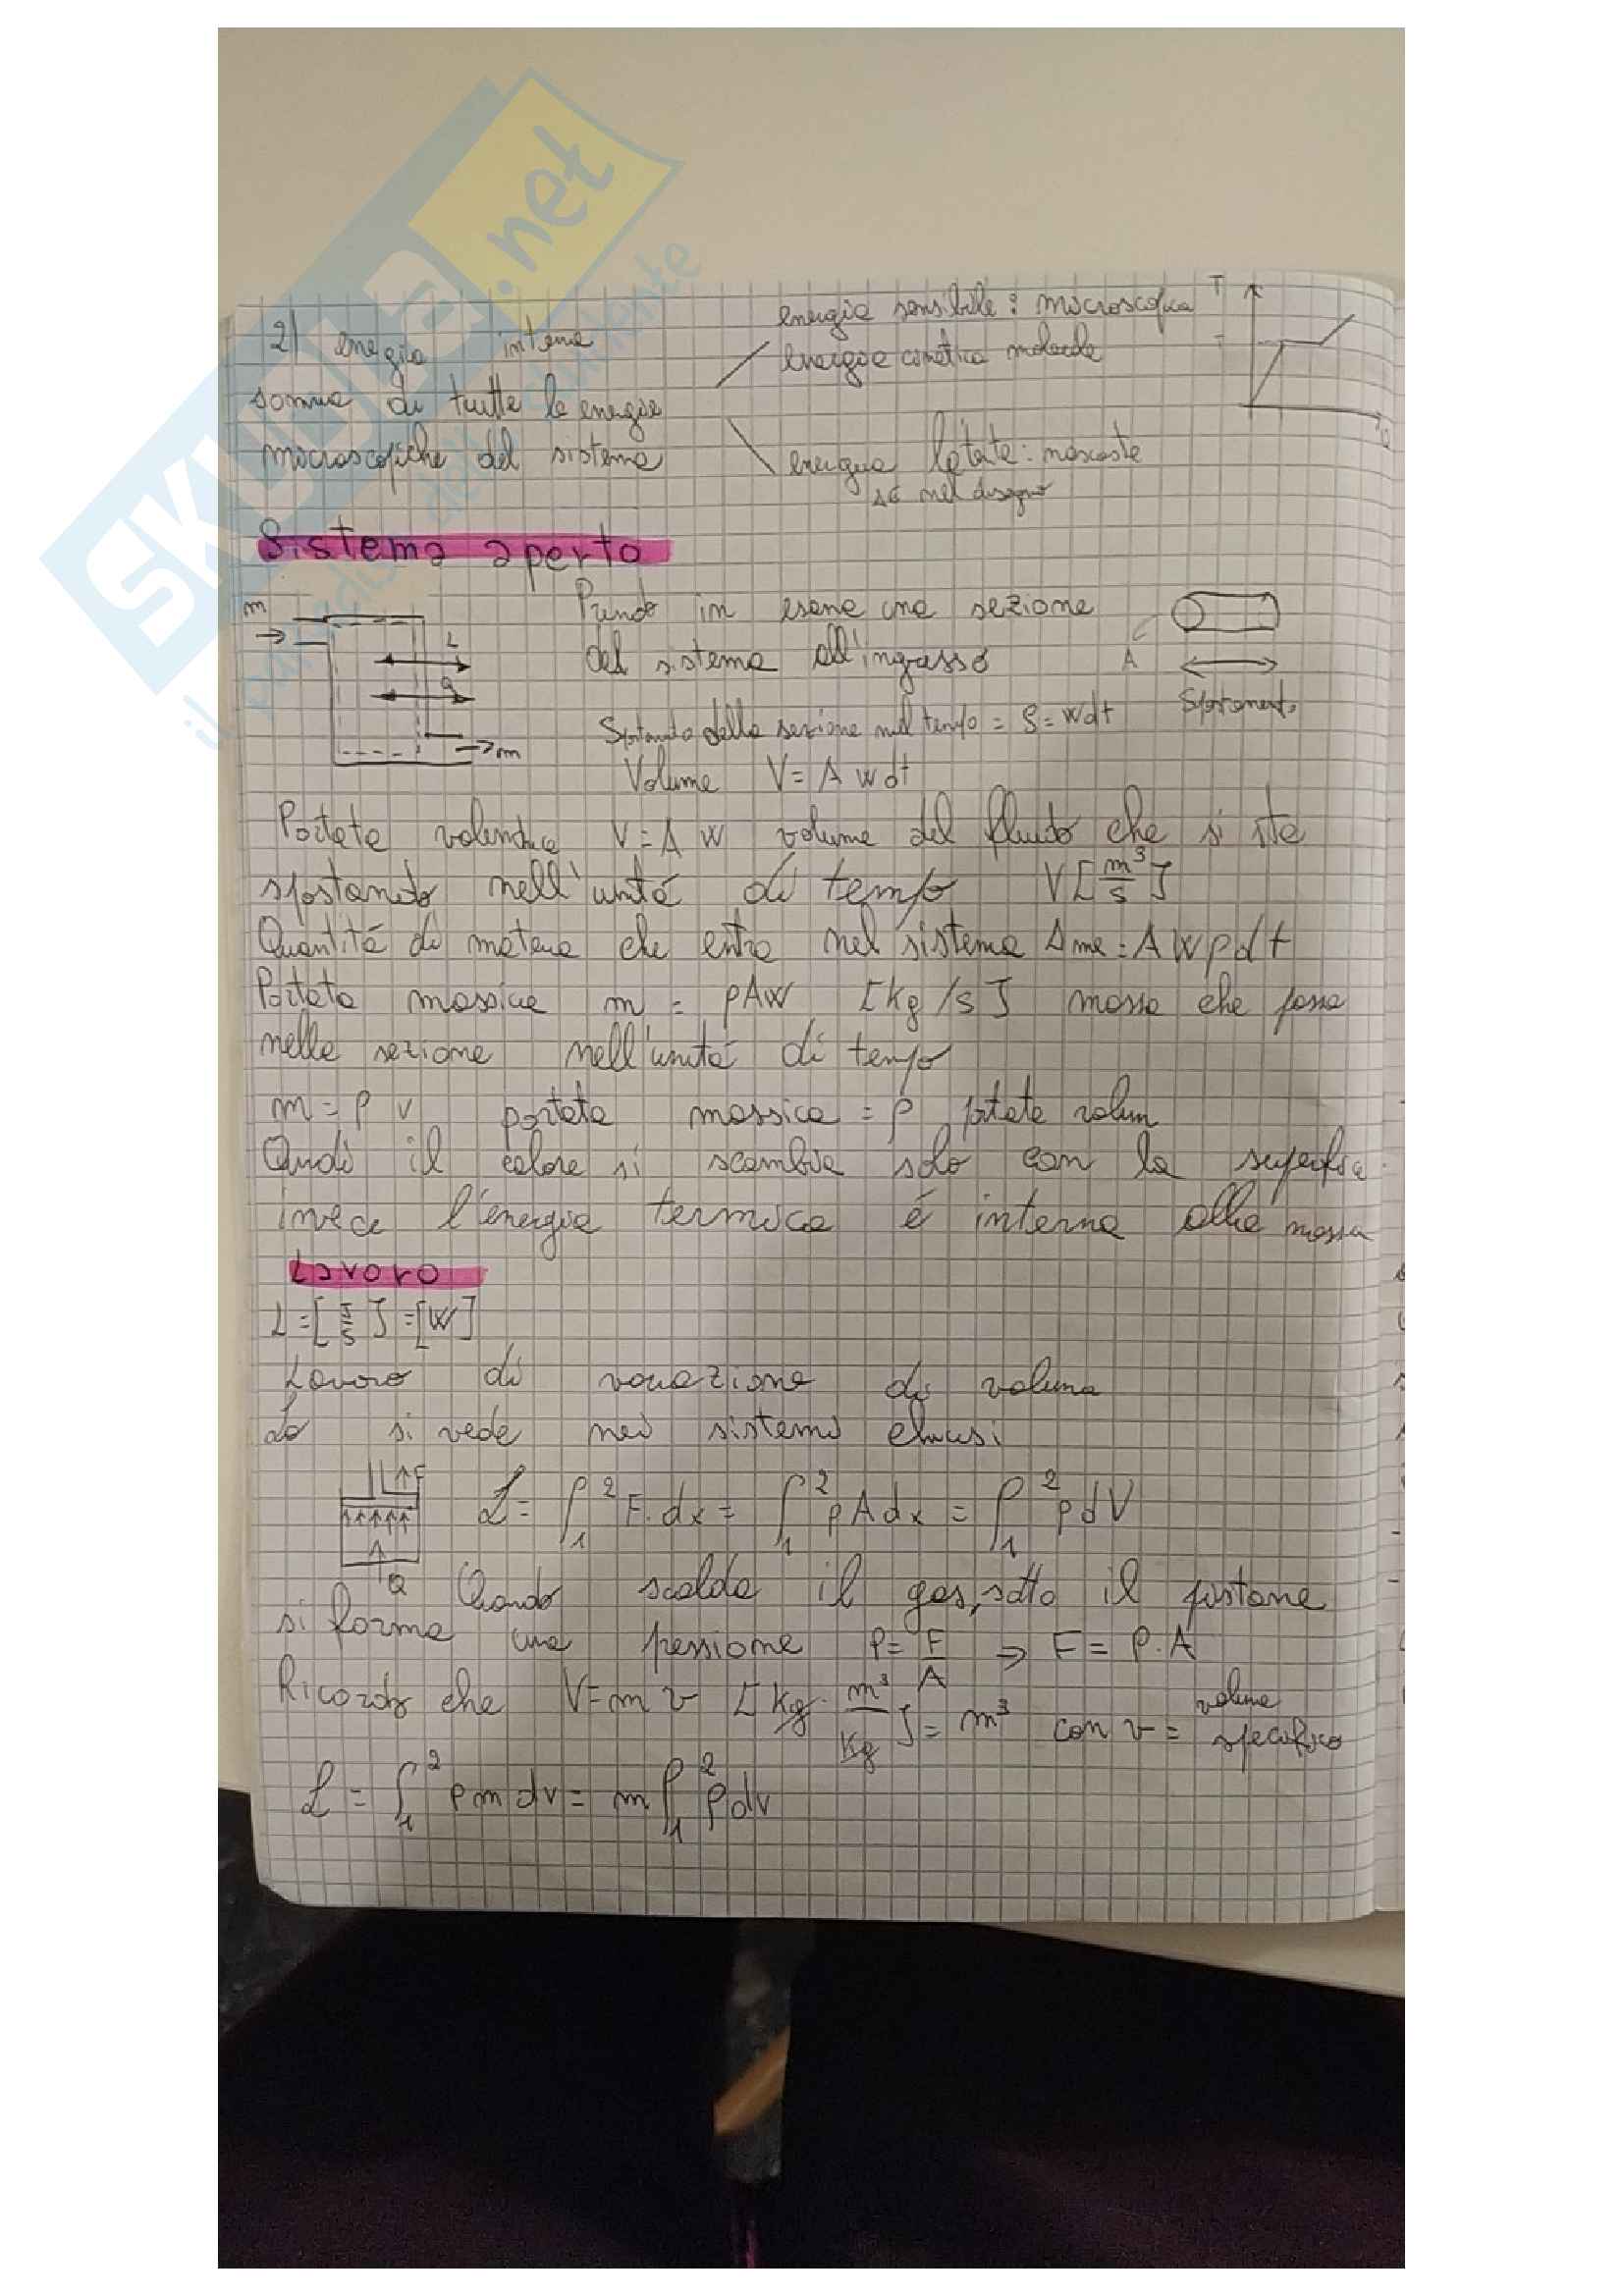 SKUOLA.net
il paradiso dello studente
2) energia interna
somma di tutte le energie
microscopiche del sistema
energia sensibile : microscopica
energie cinetica molecole
energia latente : nascoste
sé nel disegno
T
Q
Sistema aperto
m
L
Q
m
Prendo in esame una sezione
del sistema all'ingresso
A
Spostamento
Spostamento della sezione nel tempo = S = wdt
Volume V = A w dt
Portata volumetrica V = A w volume del fluido che si sta
spostando nell'unitá di tempo V [m³/s]
Quantitá di materia che entra nel sistema Δme = A W ρ dt
Portata massica m = ρAw [kg/s] massa che passa
nella sezione nell'unitá di tempo
m = ρ v portata massica = ρ portata volum
Quindi il calore si scambia solo con la superficie
invece l'energia termica é interna alla massa
Lavoro
L = [J/s] = [W]
Lavoro di variazione di volume
Lo si vede nei sistemi chiusi
F
Q
L = ∫₁² F · dx = ∫₁² p A dx = ∫₁² p dV
Quando scalda il gas, sotto il pistone
si forma una pressione P = F/A ⇒ F = P · A
Ricordo che V = m v [Kg · m³/Kg] = m³ con v = volume specifico
L = ∫₁² p m dv = m ∫₁² p dv